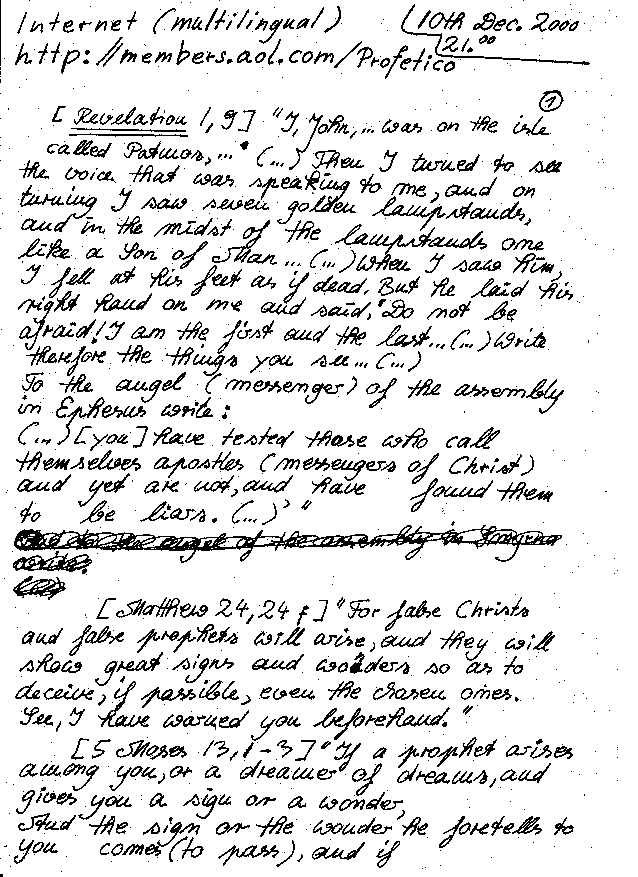 Internet (multilingual)
10th Dec. 2000
21.00
http://members.aol.com/Profetico
1
[Revelation 1,9] "I, John,... was on the isle
called Patmos,..." (...) Then I turned to see
the voice that was speaking to me, and on
turning I saw seven golden lampstands,
and in the midst of the lampstands one
like a Son of Man...(...) When I saw him,
I fell at his feet as if dead. But he laid his
right hand on me and said, 'Do not be
afraid! I am the first and the last...(...) Write
therefore the things you see...(...)
To the angel (messenger) of the assembly
in Ephesus write:
(...) [you] have tested those who call
themselves apostles (messengers of Christ)
and yet are not, and have found them
to be liars. (...)' "
to the angel of the assembly in Smyrna
write:
[Matthew 24,24 f] "For false Christs
and false prophets will arise, and they will
show great signs and wonders so as to
deceive, if possible, even the chosen ones.
See, I have warned you beforehand."
[5 Moses 13,1-3] "If a prophet arises
among you, or a dreamer of dreams, and
gives you a sign or a wonder,
And the sign or the wonder he foretells to
you comes (to pass), and if